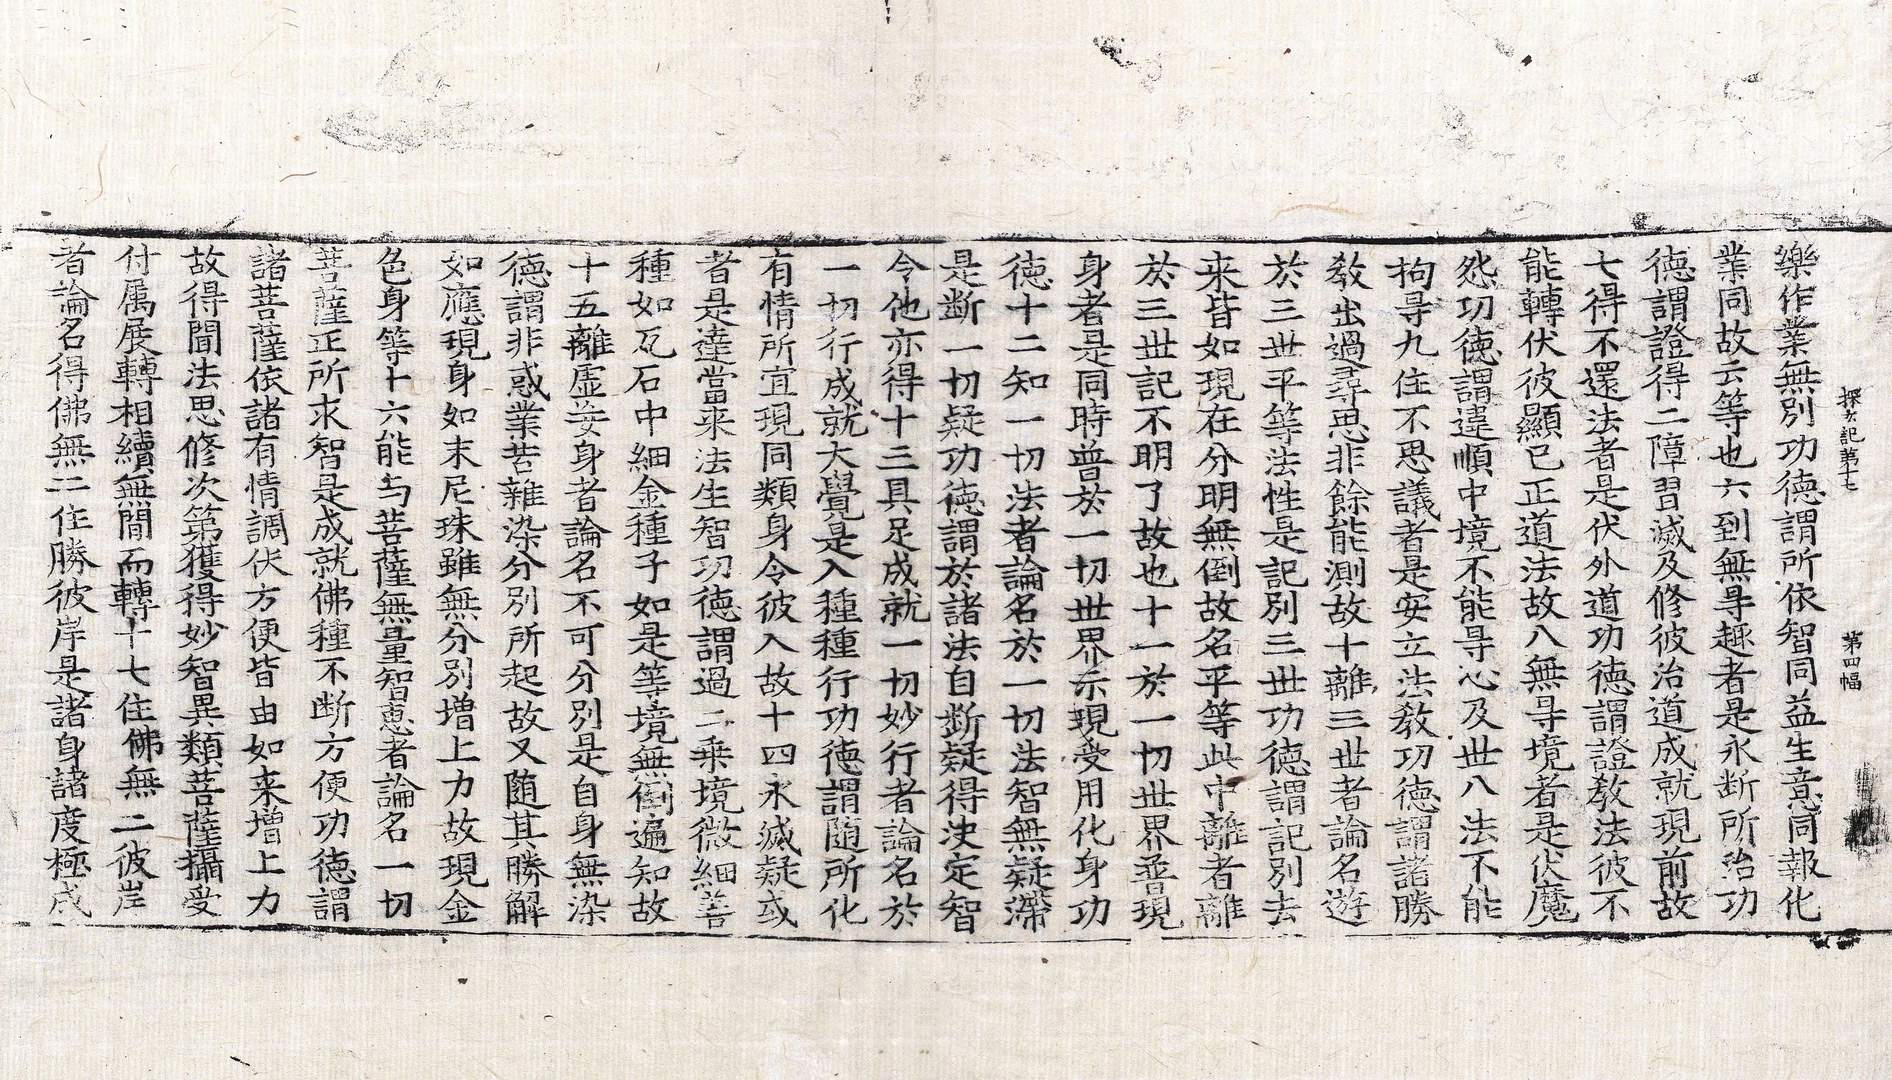 探玄記第十七　第四幅
樂作業無別功德謂所依智同益生意同報化
業同故云等也六到無㝵趣者是永断所治功
德謂證得二障習滅及修彼治道成就現前故
七得不還法者是伏外道功德謂證教法彼不
能轉伏彼顯己正道法故八無㝵境者是伏魔
怨功德謂違順中境不能㝵心及世八法不能
拘㝵九住不思議者是安立法教功德謂諸勝
教出過尋思非餘能測故十離三世者論名遊
於三世平等法性是記別三世功德謂記別去
来皆如現在分明無倒故名平等此中離者離
於三世記不明了故也十一於一切世界普現
身者是同時普於一切世界示現受用化身功
德十二知一切法者論名於一切法智無疑滯
是断一切疑功德謂於諸法自断疑得決定智
令他亦得十三具足成就一切妙行者論名於
一切行成就大覺是入種種行功德謂随所化
有情所宜現同類身令彼入故十四永滅疑或
者是達當来法生智功德謂過二乗境微細善
種如瓦石中細金種子如是等境無倒遍知故
十五離虚妄身者論名不可分別是自身無染
德謂非惑業苦雜染分別所起故又随其勝解
如應現身如末尼珠雖無分別増上力故現金
色身等十六能与菩薩無量智恵者論名一切
菩薩正所求智是成就佛種不断方便功德謂
諸菩薩依諸有情調伏方便皆由如来増上力
故得聞法思修次第獲得妙智異類菩薩攝受
付属展轉相續無間而轉十七住佛無二彼岸
者論名得佛無二住勝彼岸是諸身諸度極成